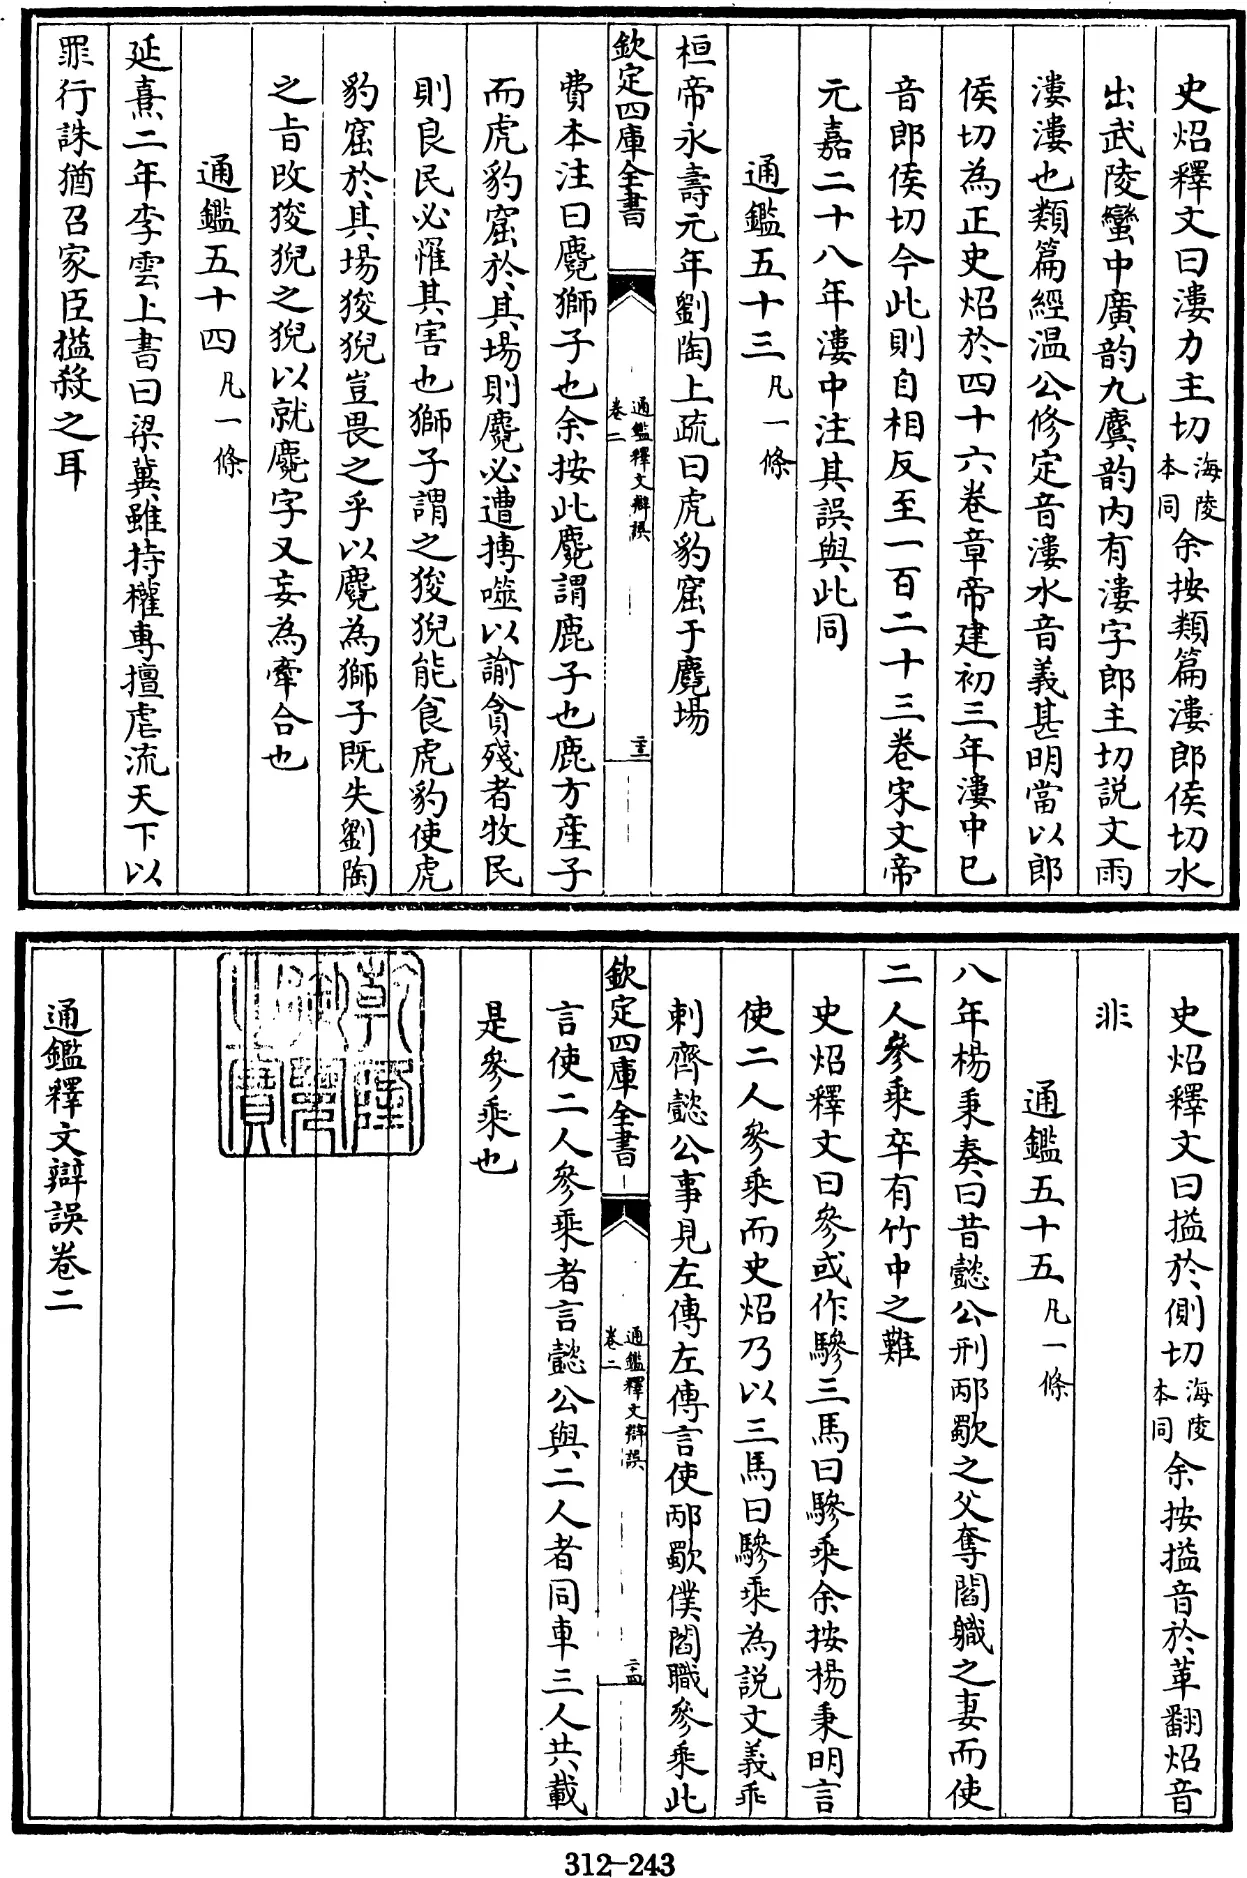 史炤釋文曰漊力主切海陵本同余按類篇漊郎侯切水
出武陵蠻中廣韵九麌韵内有漊字郎主切説文雨
漊漊也類篇經温公修定音漊水音義甚明當以郎
侯切為正史炤於四十六卷章帝建初三年漊中已
音郎侯切今此則自相反至一百二十三卷宋文帝
元嘉二十八年漊中注其誤與此同
通鑑五十三凡一條
桓帝永壽元年劉陶上疏曰虎豹窟于麑場
欽定四庫全書
通鑑釋文辯誤
卷二
費本注曰麑獅子也余按此麑謂鹿子也鹿方産子
而虎豹窟於其場則麑必遭搏噬以諭貪殘者牧民
則良民必罹其害也獅子謂之狻猊能食虎豹使虎
豹窟於其場狻猊豈畏之乎以麑為獅子既失劉陶
之旨改狻猊之猊以就麑字又妄為牽合也
通鑑五十四凡一條
延熹二年李雲上書曰梁冀雖持權專擅虐流天下以
罪行誅猶召家臣搤殺之耳
史炤釋文曰搤於側切海陵本同余按搤音於革翻炤音
非
通鑑五十五凡一條
八年楊秉奏曰昔懿公刑邴歜之父奪閻職之妻而使
二人參乘卒有竹中之難
史炤釋文曰參或作驂三馬曰驂乘余按楊秉明言
使二人參乘而史炤乃以三馬曰驂乘為説文義乖
刺齊懿公事見左傳左傳言使邴歜僕閻職參乘此
欽定四庫全書
通鑑釋文辯誤
卷二
二十四
言使二人參乘者言懿公與二人者同車三人共載
是參乘也
乾隆御覽之寶
通鑑釋文辯誤卷二
312-243